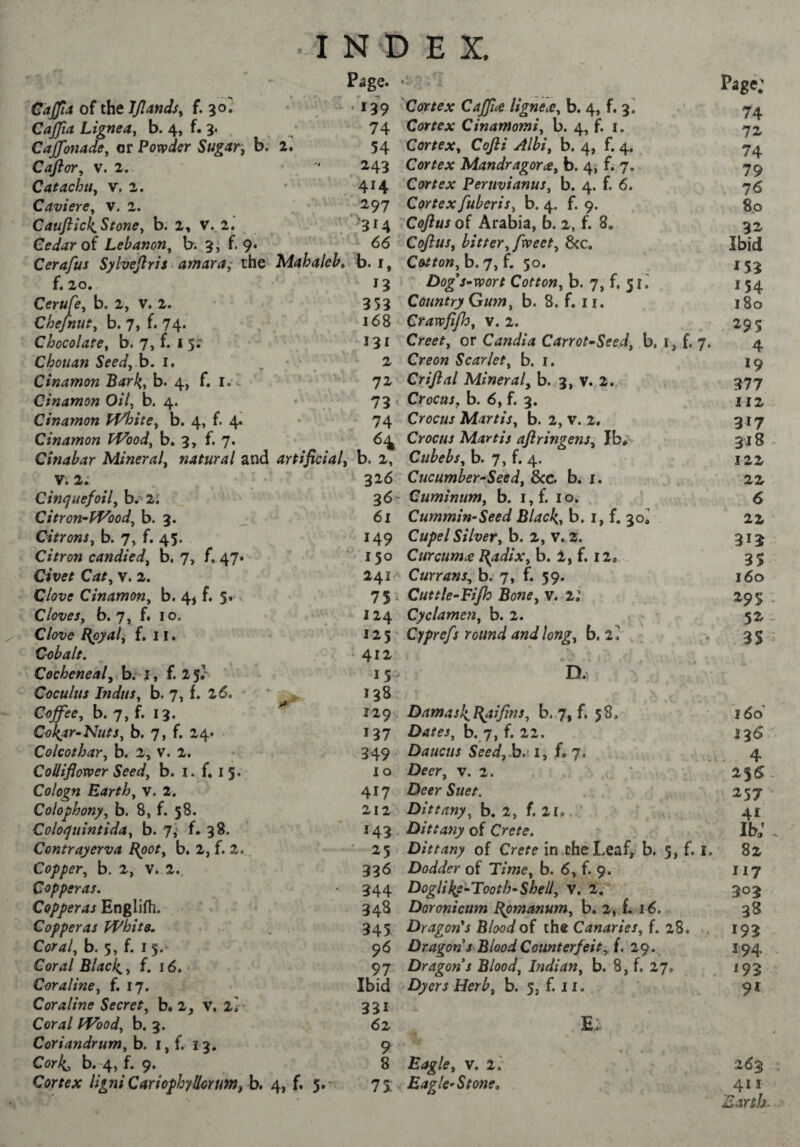 INDEX.
Page.
Cassia of the Islands, f. 30. 139
Cassia Lignea, b. 4, f. 3. 74
Cassonade, or Powder Sugar, b. 2. 54
Castor, v. 2. 243
Catachu, v. 2. 414
Caviere, v. 2. 297
Caustick Stone, b. 2, v. 2. 314
Cedar of Lebanon, b. 3, f. 9. 66
Cerasus Sylvestris amara, the Mahaleb. b. 1,
f. 20. 13
Ceruse, b. 2, v. 2. 353
Chesnut, b. 7, f. 74. 168
Chocolate, b. 7, f. 15. 131
Chouan Seed, b. 1. 2
Cinamon Bark, b. 4, f. 1. 72
Cinamon Oil, b. 4. 73
Cinamon White, b. 4, f. 4. 74
Cinamon Wood, b. 3, f. 7. 64
Cinabar Mineral, natural and artificial, b. 2,
v. 2. 326
Cinquefoil, b. 2. 36
Citron-Wood, b. 3. 61
Citrons, b. 7, f. 45. 149
Citron candied, b. 7, f. 47. 150
Civet Cat, v. 2. 241
Clove Cinamon, b. 4, f. 5. 75
Cloves, b. 7, f. 10. 124
Clove Royal, f. 11. 125
Cobalt. 412
Cocheneal, b. 1, f. 25. 15
Coculus Indus, b. 7, f. 26. 138
Coffee, b. 7, f. 13. 129
Cokar-Nuts, b. 7, f. 24. 137
Colcothar, b. 2, v. 2. 349
Colliflower Seed, b. 1. f. 15. 10
Cologn Earth, v. 2. 417
Colophony, b. 8, f. 58. 212
Coloquintida, b. 7, f. 38. 143
Contrayerva Root, b. 2, f. 2. 25
Copper, b. 2, v. 2. 336
Copperas. 344
Copperas English. 348
Copperas White. 345
Coral, b. 5, f. 15. 96
Coral Black, f. 16. 97
Coraline, f. 17. Ibid
Coraline Secret, b. 2, v. 2. 331
Coral Wood, b. 3. 62
Coriandrum, b. 1, f. 13. 9
Cork, b. 4, f. 9. 8
Cortex ligni Cariophyllorum, b. 4, f. 5. 75
Page.
Cortex Cassiæ ligneæ, b. 4, f. 3. 74
Cortex Cinamomi, b. 4, f. 1. 72
Cortex, Costi Albi, b. 4, f. 4. 74
Cortex Mandragoræ, b. 4, f. 7. 79
Cortex Peruvianus, b. 4. f. 6. 76
Cortex suberis, b. 4. f. 9. 80
Costus of Arabia, b. 2, f. 8. 32
Costus, bitter, sweet, &c. Ibid
Cotton, b. 7, f. 50. 153
Dog's-wort Cotton, b. 7, f. 51. 154
Country Gum, b. 8. f. 11. 180
Crawfish, v. 2. 295
Creet, or Candia Carrot-Seed, b. 1, f. 7. 4
Creon Scarlet, b. 1. 19
Cristal Mineral, b. 3, v. 2. 377
Crocus, b. 6, f. 3. 112
Crocus Martis, b. 2, v. 2. 317
Crocus Martis astringens, Ib. 318
Cubebs, b. 7, f. 4. 122
Cucumber-Seed, &c. b. 1. 22
Cuminum, b. 1, f. 10. 6
Cummin-Seed Black, b. 1, f. 30. 22
Cupel Silver, b. 2, v. 2. 313
Curcumæ Radix, b. 2, f. 12. 35
Currans, b. 7, f. 59. 160
Cuttle-Fish Bone, v. 2. 295
Cyclamen, b. 2. 52
Cypress round and long, b. 2. 35
D.
Damask Raisins, b. 7, f. 58. 160
Dates, b. 7, f. 22. 136
Daucus Seed, b. 1, f. 7. 4
Deer, v. 2. 256
Deer Suet. 257
Dittany, b. 2, f. 21. 41
Dittany of Crete. Ib.
Dittany of Crete in the Leaf, b. 5, f. 1. 82
Dodder of Time, b. 6, f. 9. 117
Doglike-Tooth-Shell, v. 2. 303
Doronicum Romanum, b. 2, f. 16. 38
Dragon's Blood of the Canaries, f. 28. 193
Dragon's Blood Counterfeit, f. 29. 194
Dragon's Blood, Indian, b. 8, f. 27. 193
Dyers Herb, b. 5, f. 11. 91
E.
Eagle, v. 2. 263
Eagle-Stone. 411
Earth.